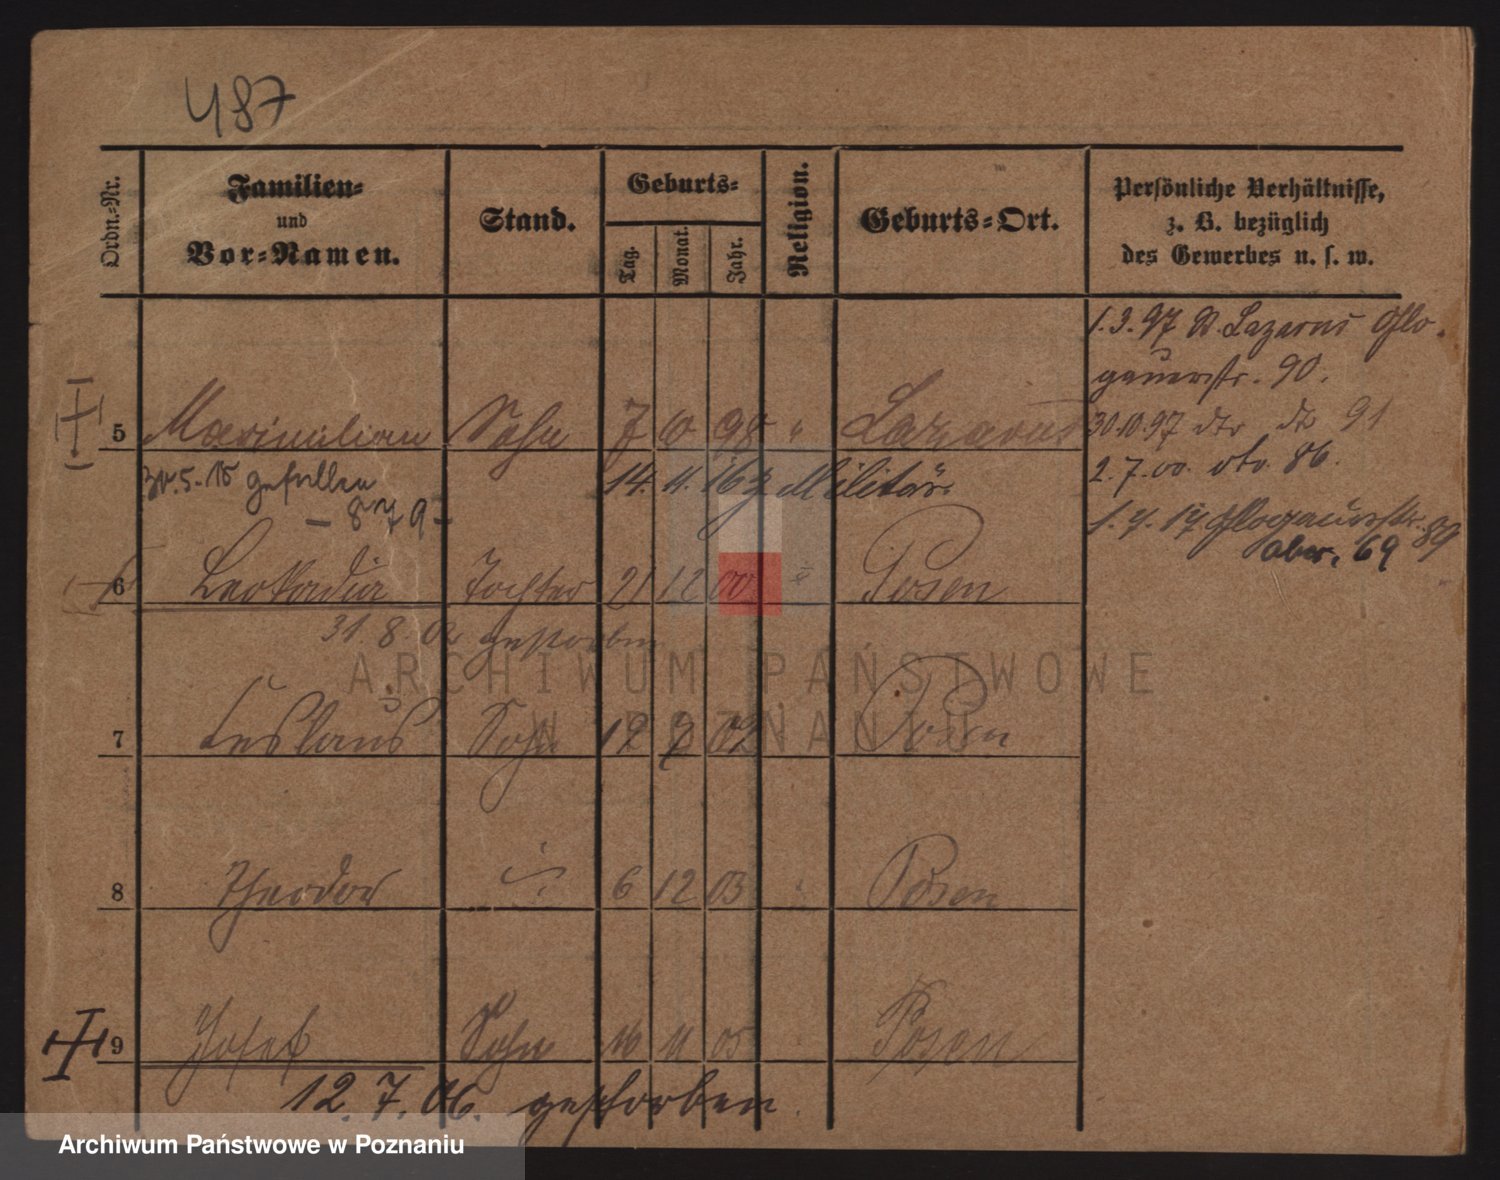 487
Ordn.-Nr.
Familien-
und
Vor-Namen.
Stand.
Geburts-
Tag.
Monat.
Jahr.
Religion.
Geburts-Ort.
Persönliche Verhältnisse,
z. B. bezüglich
des Gewerbes u. s. w.
1.3.97 St. Lazarus Glo-
gauerstr. 90.
5 Maximilian Sohn 7 10 98 " Lazarus
30.10.97 dto 91
gefallen 14. 11. 16 z Militär.
2.7.00. dto. 86.
- 879 -
1.4.17 Glogauerstr. 89
aber. 69
6 Leokadia Tochter 21 12 00 " Posen
31.8.02 gestorben
7 Ceslaus Sohn 19 7 02 Posen
8 Theodor 6 12 03 Posen
9 Josef Sohn 16 11 05 Posen
12.7.06. gestorben.
ARCHIWUM PAŃSTWOWE
W POZNANIU
Archiwum Państwowe w Poznaniu